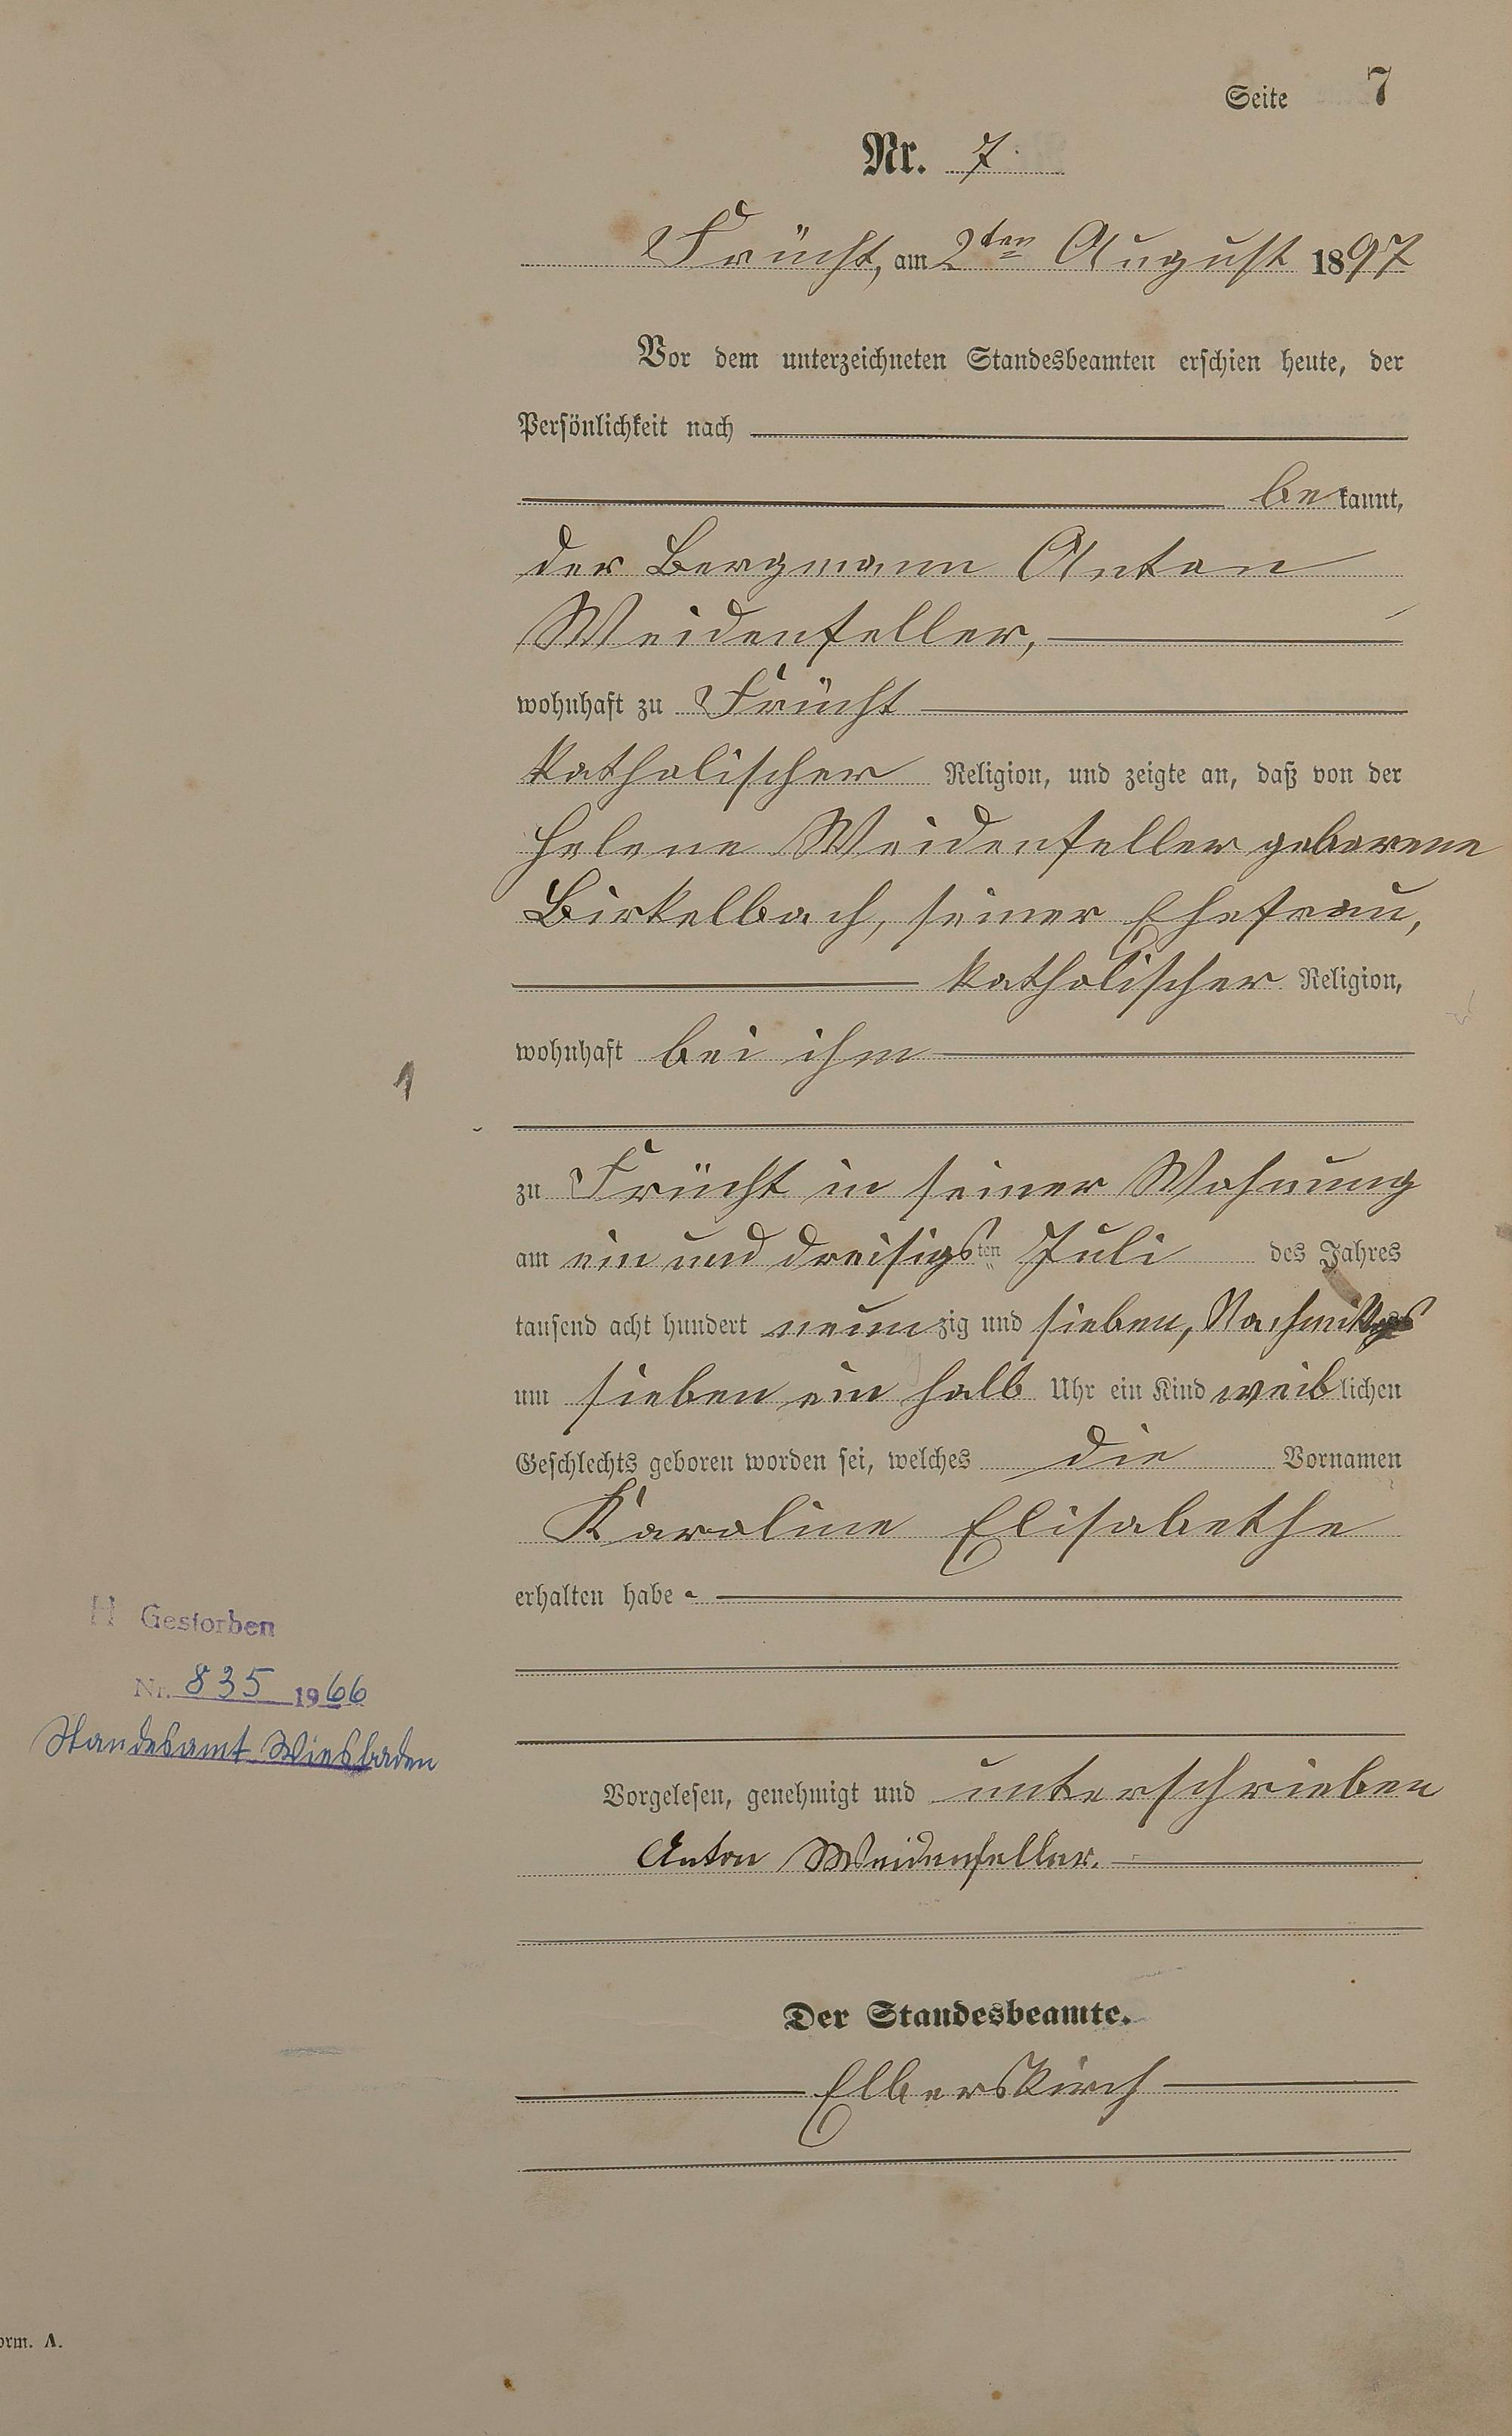 Seite 7
Nr. 7.
Frücht, am 2ten August 1897
Vor dem unterzeichneten Standesbeamten erschien heute, der
Persönlichkeit nach
bekannt,
der Bergmann Anton
Weidenfeller,
wohnhaft zu Frücht
katholischer Religion, und zeigte an, daß von der
Helene Weidenfeller geborene
Birkelbach, seiner Ehefrau,
katholischer Religion,
wohnhaft bei ihm
1
zu Frücht in seiner Wohnung
am ein und dreisigsten Juli des Jahres
tausend acht hundert neunzig und sieben, Nachmittags
um sieben ein halb Uhr ein Kind weiblichen
Geschlechts geboren worden sei, welches die Vornamen
Karoline Elisabethe
erhalten habe.
H Gestorben
Nr. 835 1966
Standesamt Wiesbaden
Vorgelesen, genehmigt und unterschrieben
Anton Weidenfeller.
Der Standesbeamte.
Elberskirch
orm. A.